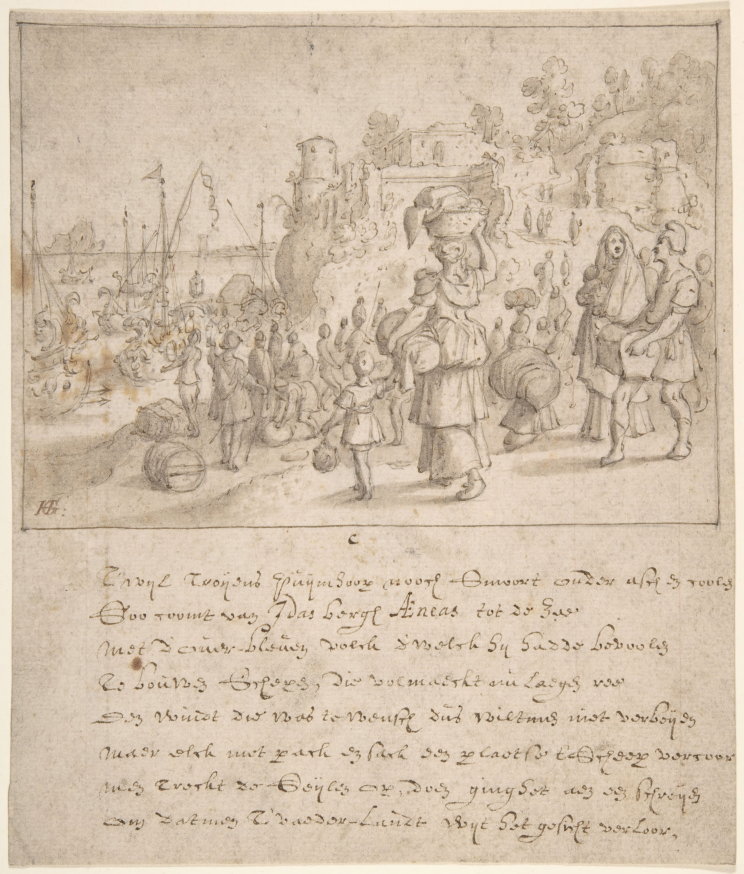 HG:
C
T'wijl Troijens puijnhoop noch Smoort onder asch en coolen
Soo coomt van Idas bergh Æneas tot de Zee
Met d'ouer-bleuen volck d'welck hij hadde bevoolen
Te bouwen Schepen, die volmaeckt nu laegen ree
Den windt die was te wensch dus wiltmen niet verbeijen
Maer elck met pack en sack een plaetse t'Scheep vercoor
Men Treckt de Seijlen op, doen gingh het aen een schreijen
Om datmen T'vaeder-Landt wijt het gesicht verloor,